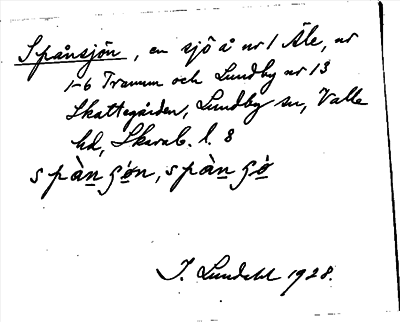 Spånsjön, en sjö å nr 1 Åle, nr
1-6 Tramm och Lundby nr 13
Skattegården, Lundby sn, Valle
hd, Skarab. l. 8
spàn ʂön, spàn ʂö
J. Lundahl 1928.